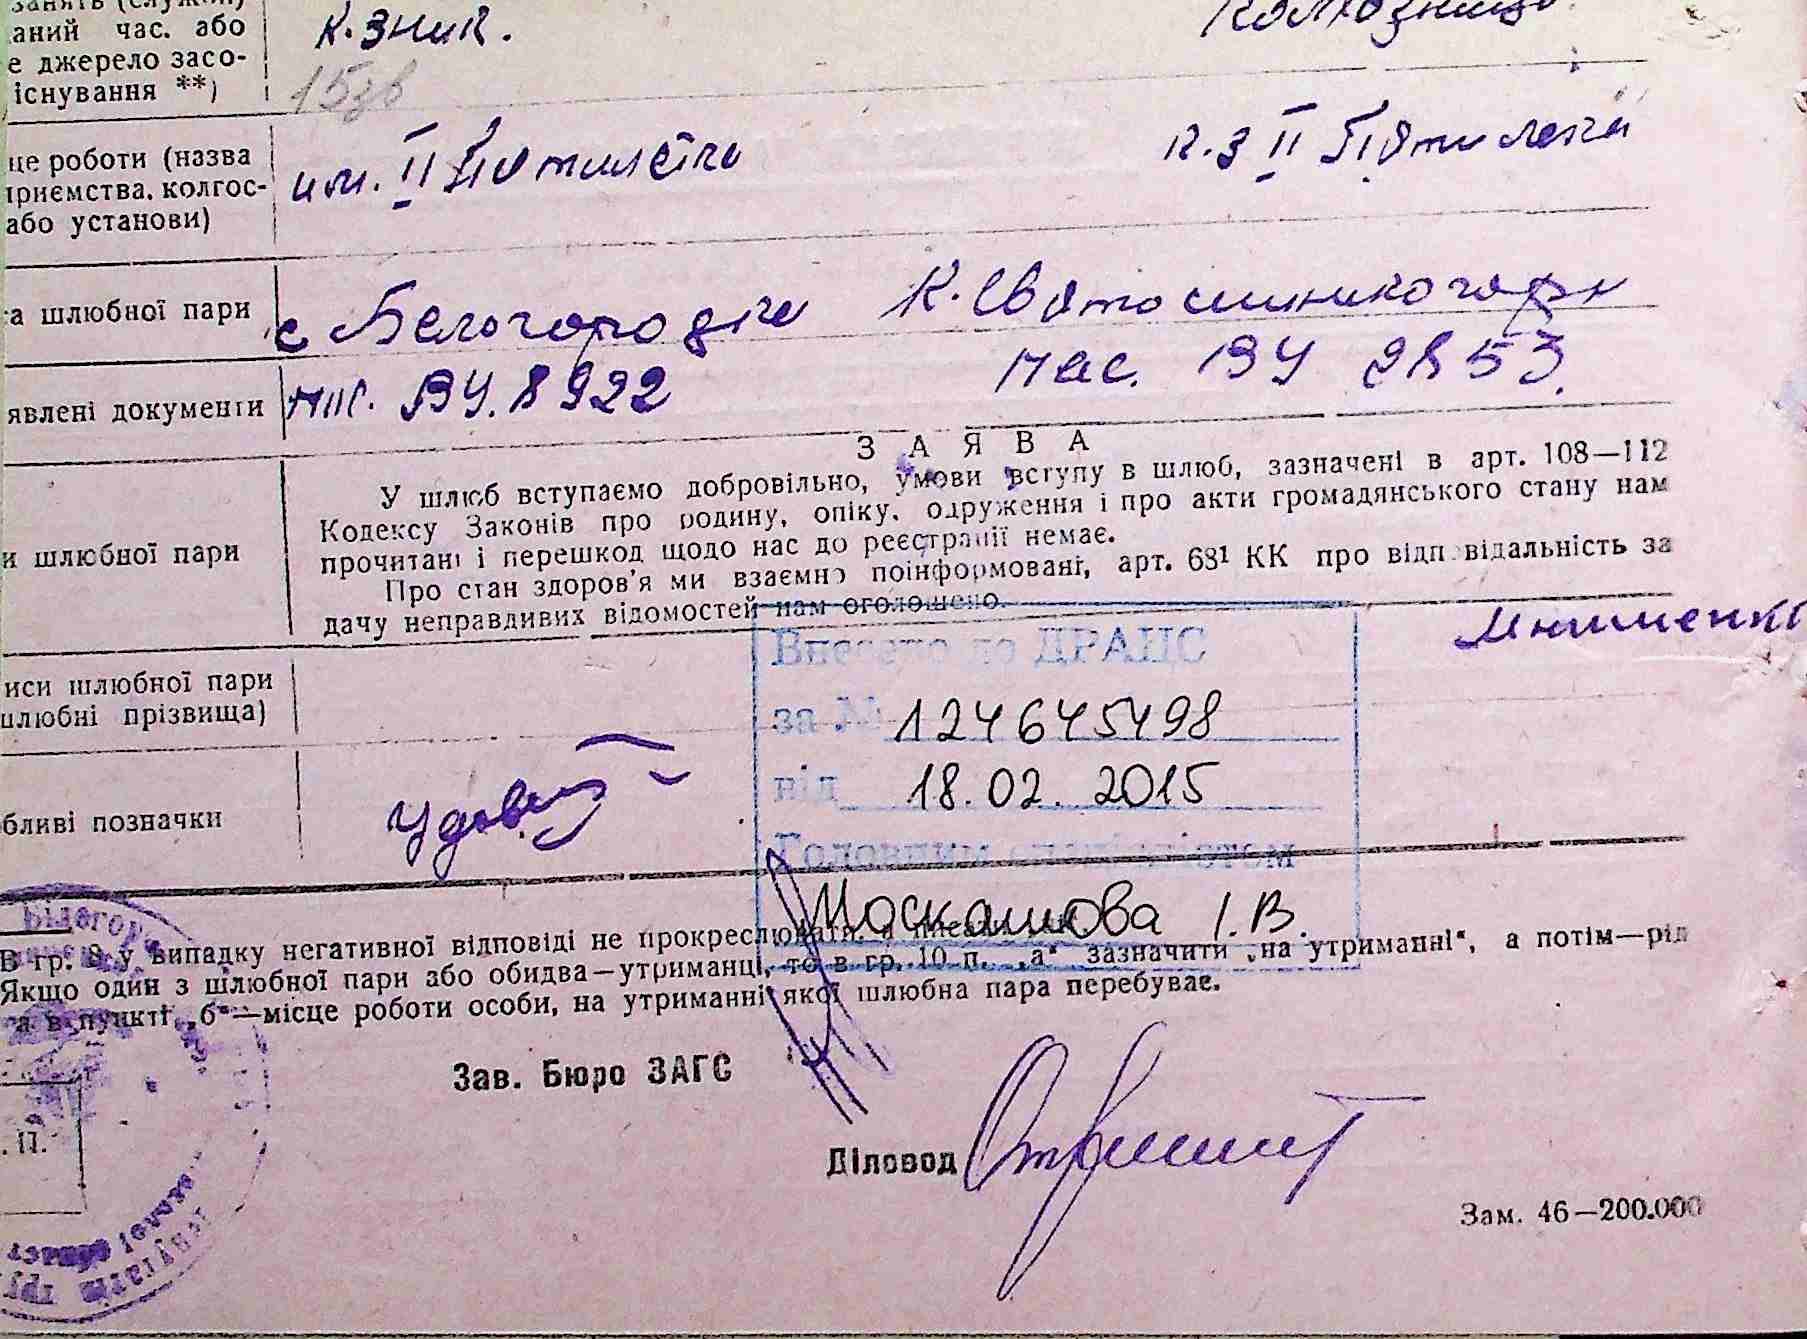 занять (служби)
аний час. або к.зник. колхозниця
е джерело засо-
існування **) 15зв
це роботи (назва им. ІІ Пятилєтки к.з ІІ Пятилетки
приємства, колгос-
або установи)
а шлюбної пари с Белогородка К. Святошинского р-н
явлені документи пас. ВУ. 8922 пас. ВУ 2853.
ЗАЯВА
У шлюб вступаємо добровільно, умови вступу в шлюб, зазначені в арт. 108—112
Кодексу Законів про родину, опіку, одруження і про акти громадянського стану нам
прочитані і перешкод щодо нас до реєстрації немає.
и шлюбної пари
Про стан здоров'я ми взаємно поінформовані, арт. 68¹ КК про відповідальність за
дачу неправдивих відомостей нам оголошено.
Внесено до ДРАЦС
иси шлюбної пари
шлюбні прізвища)
за № 124645498
від 18.02.2015
бливі позначки
Головним спеціалістом
Москашова І.В.
В гр. 9 у випадку негативної відповіді не прокреслювати, а писати „на утриманні“, а потім—рід
Якщо один з шлюбної пари або обидва—утриманці, то в гр. 10 п. „а“ зазначити
а в пункті „б“—місце роботи особи, на утриманні якої шлюбна пара перебуває.
Зав. Бюро ЗАГС
. П.
Діловод
Зам. 46—200.000